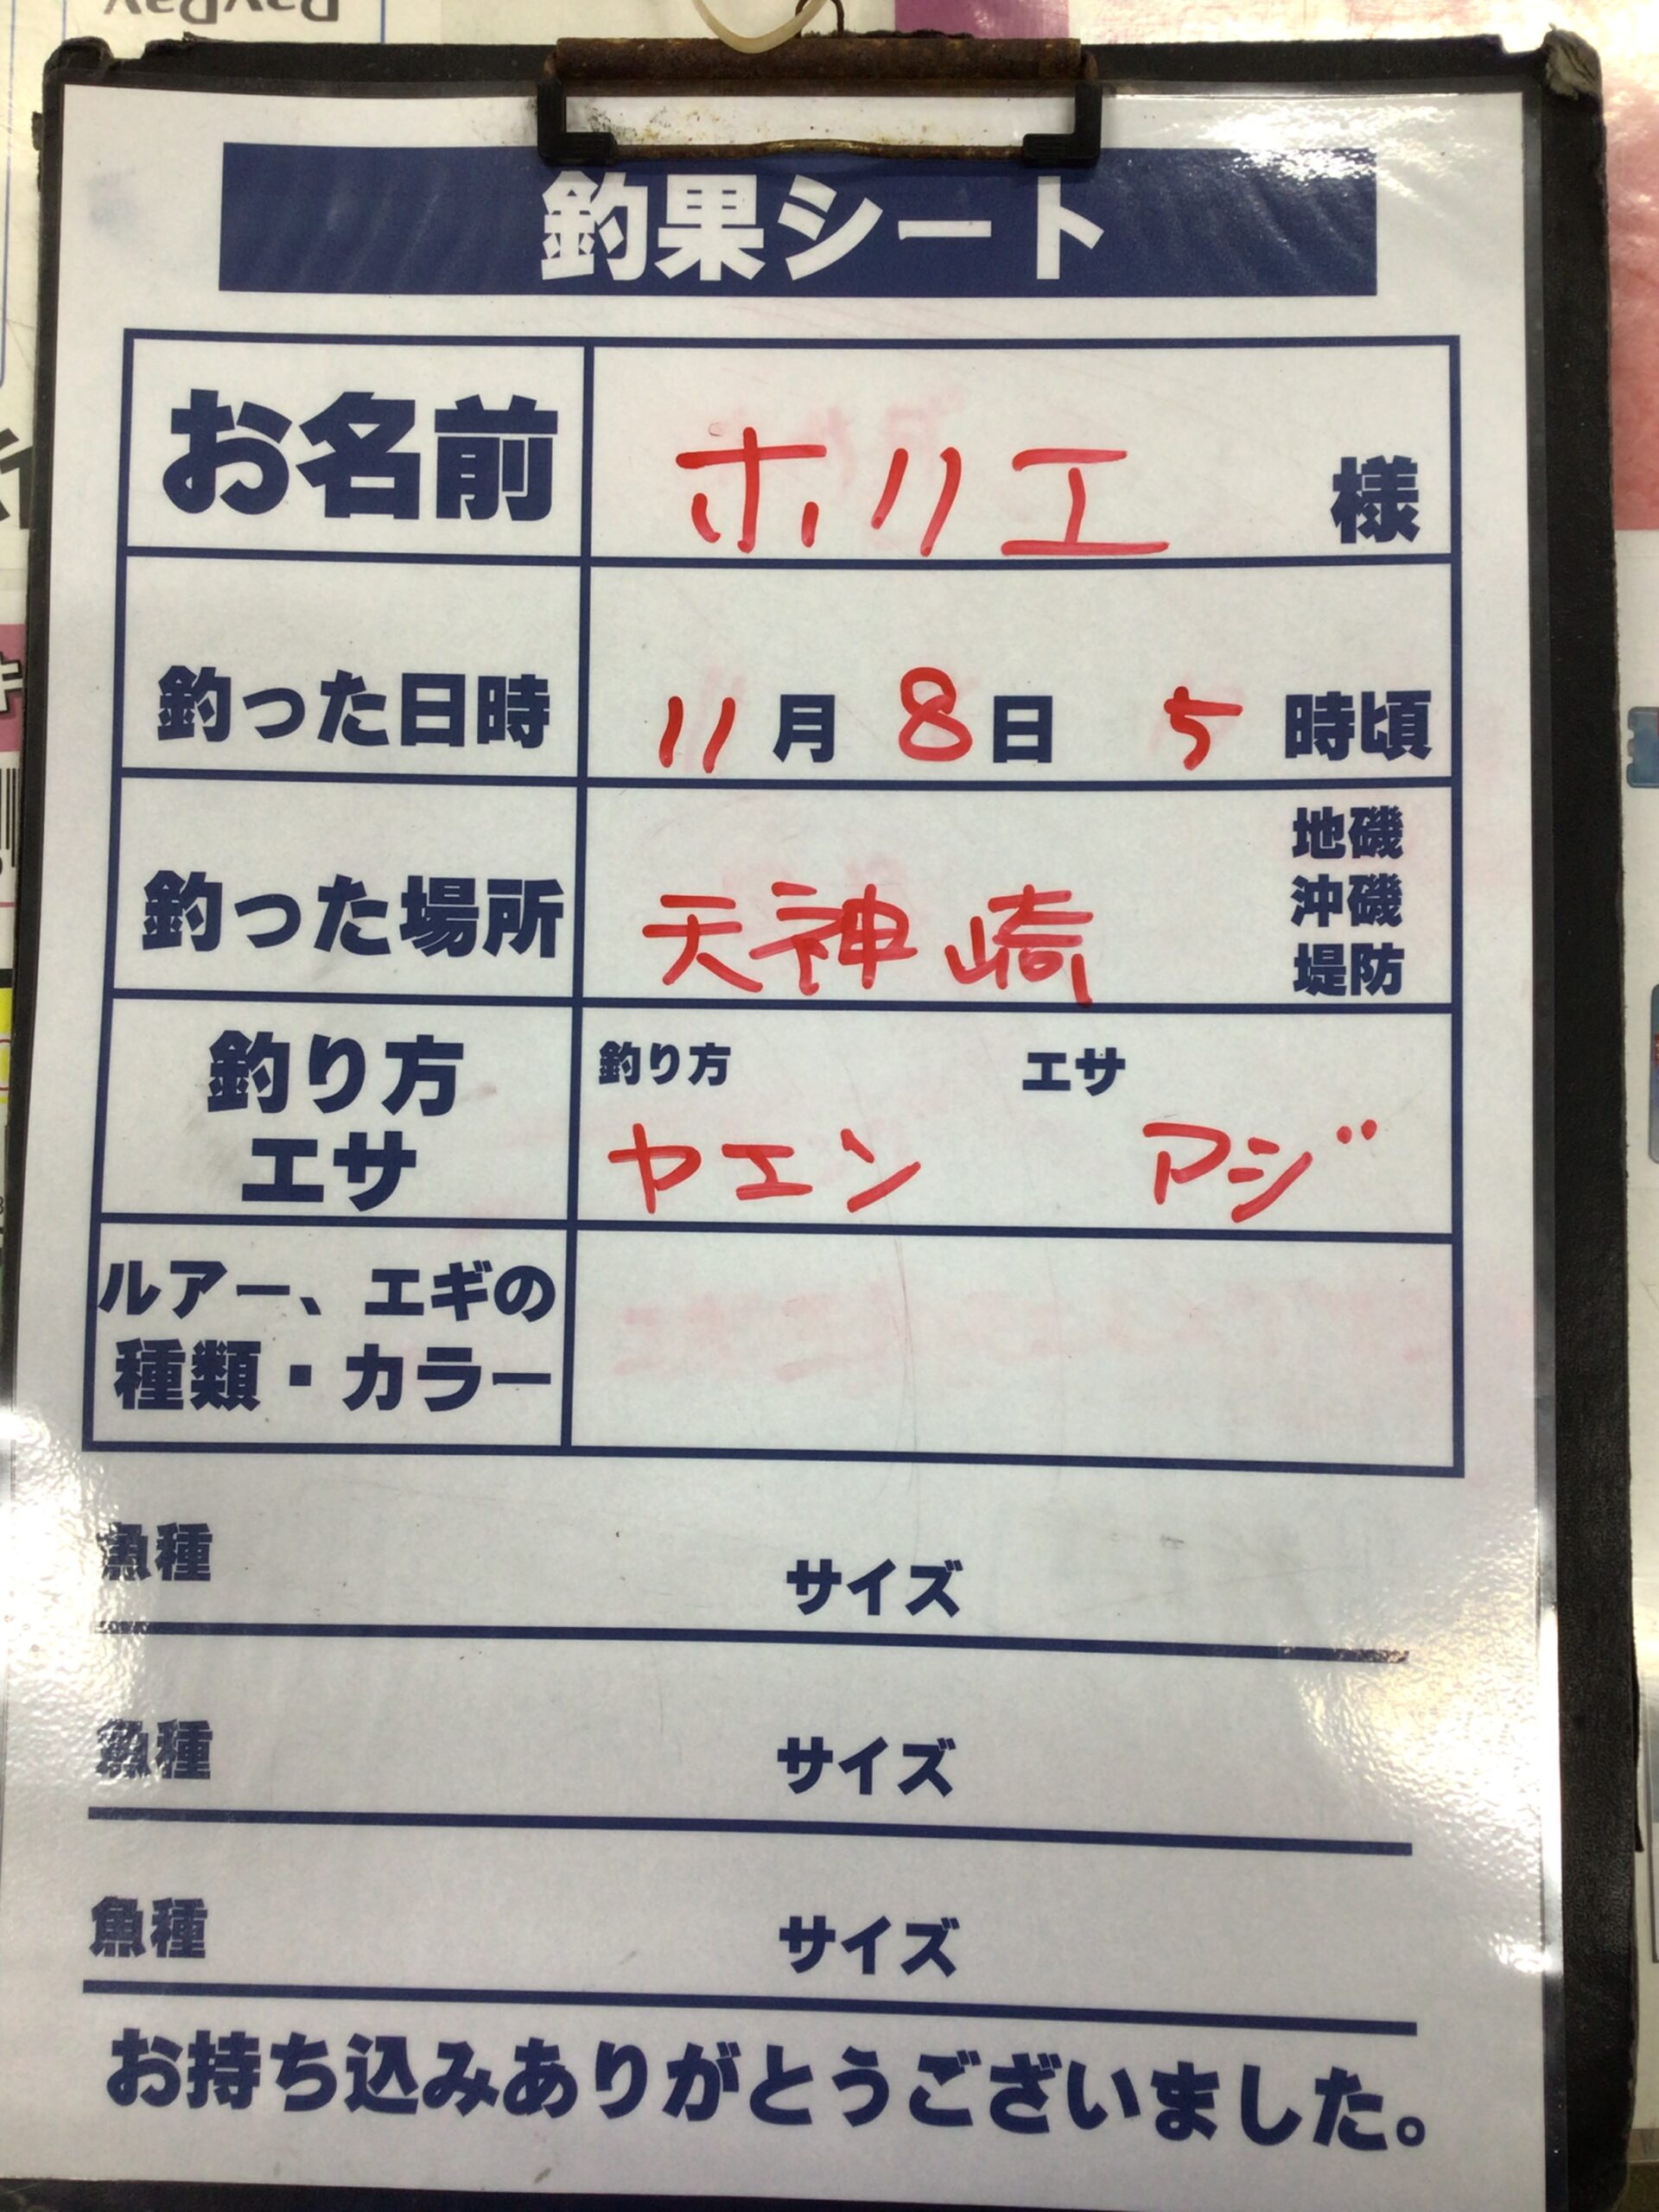 PayPay
釣果シート
お名前 ホリエ 様
釣った日時 11月8日 5時頃
釣った場所 天神崎
地磯
沖磯
堤防
釣り方
エサ
釣り方 エサ
ヤエン アジ
ルアー、エギの
種類・カラー
魚種 サイズ
魚種 サイズ
魚種 サイズ
お持ち込みありがとうございました。